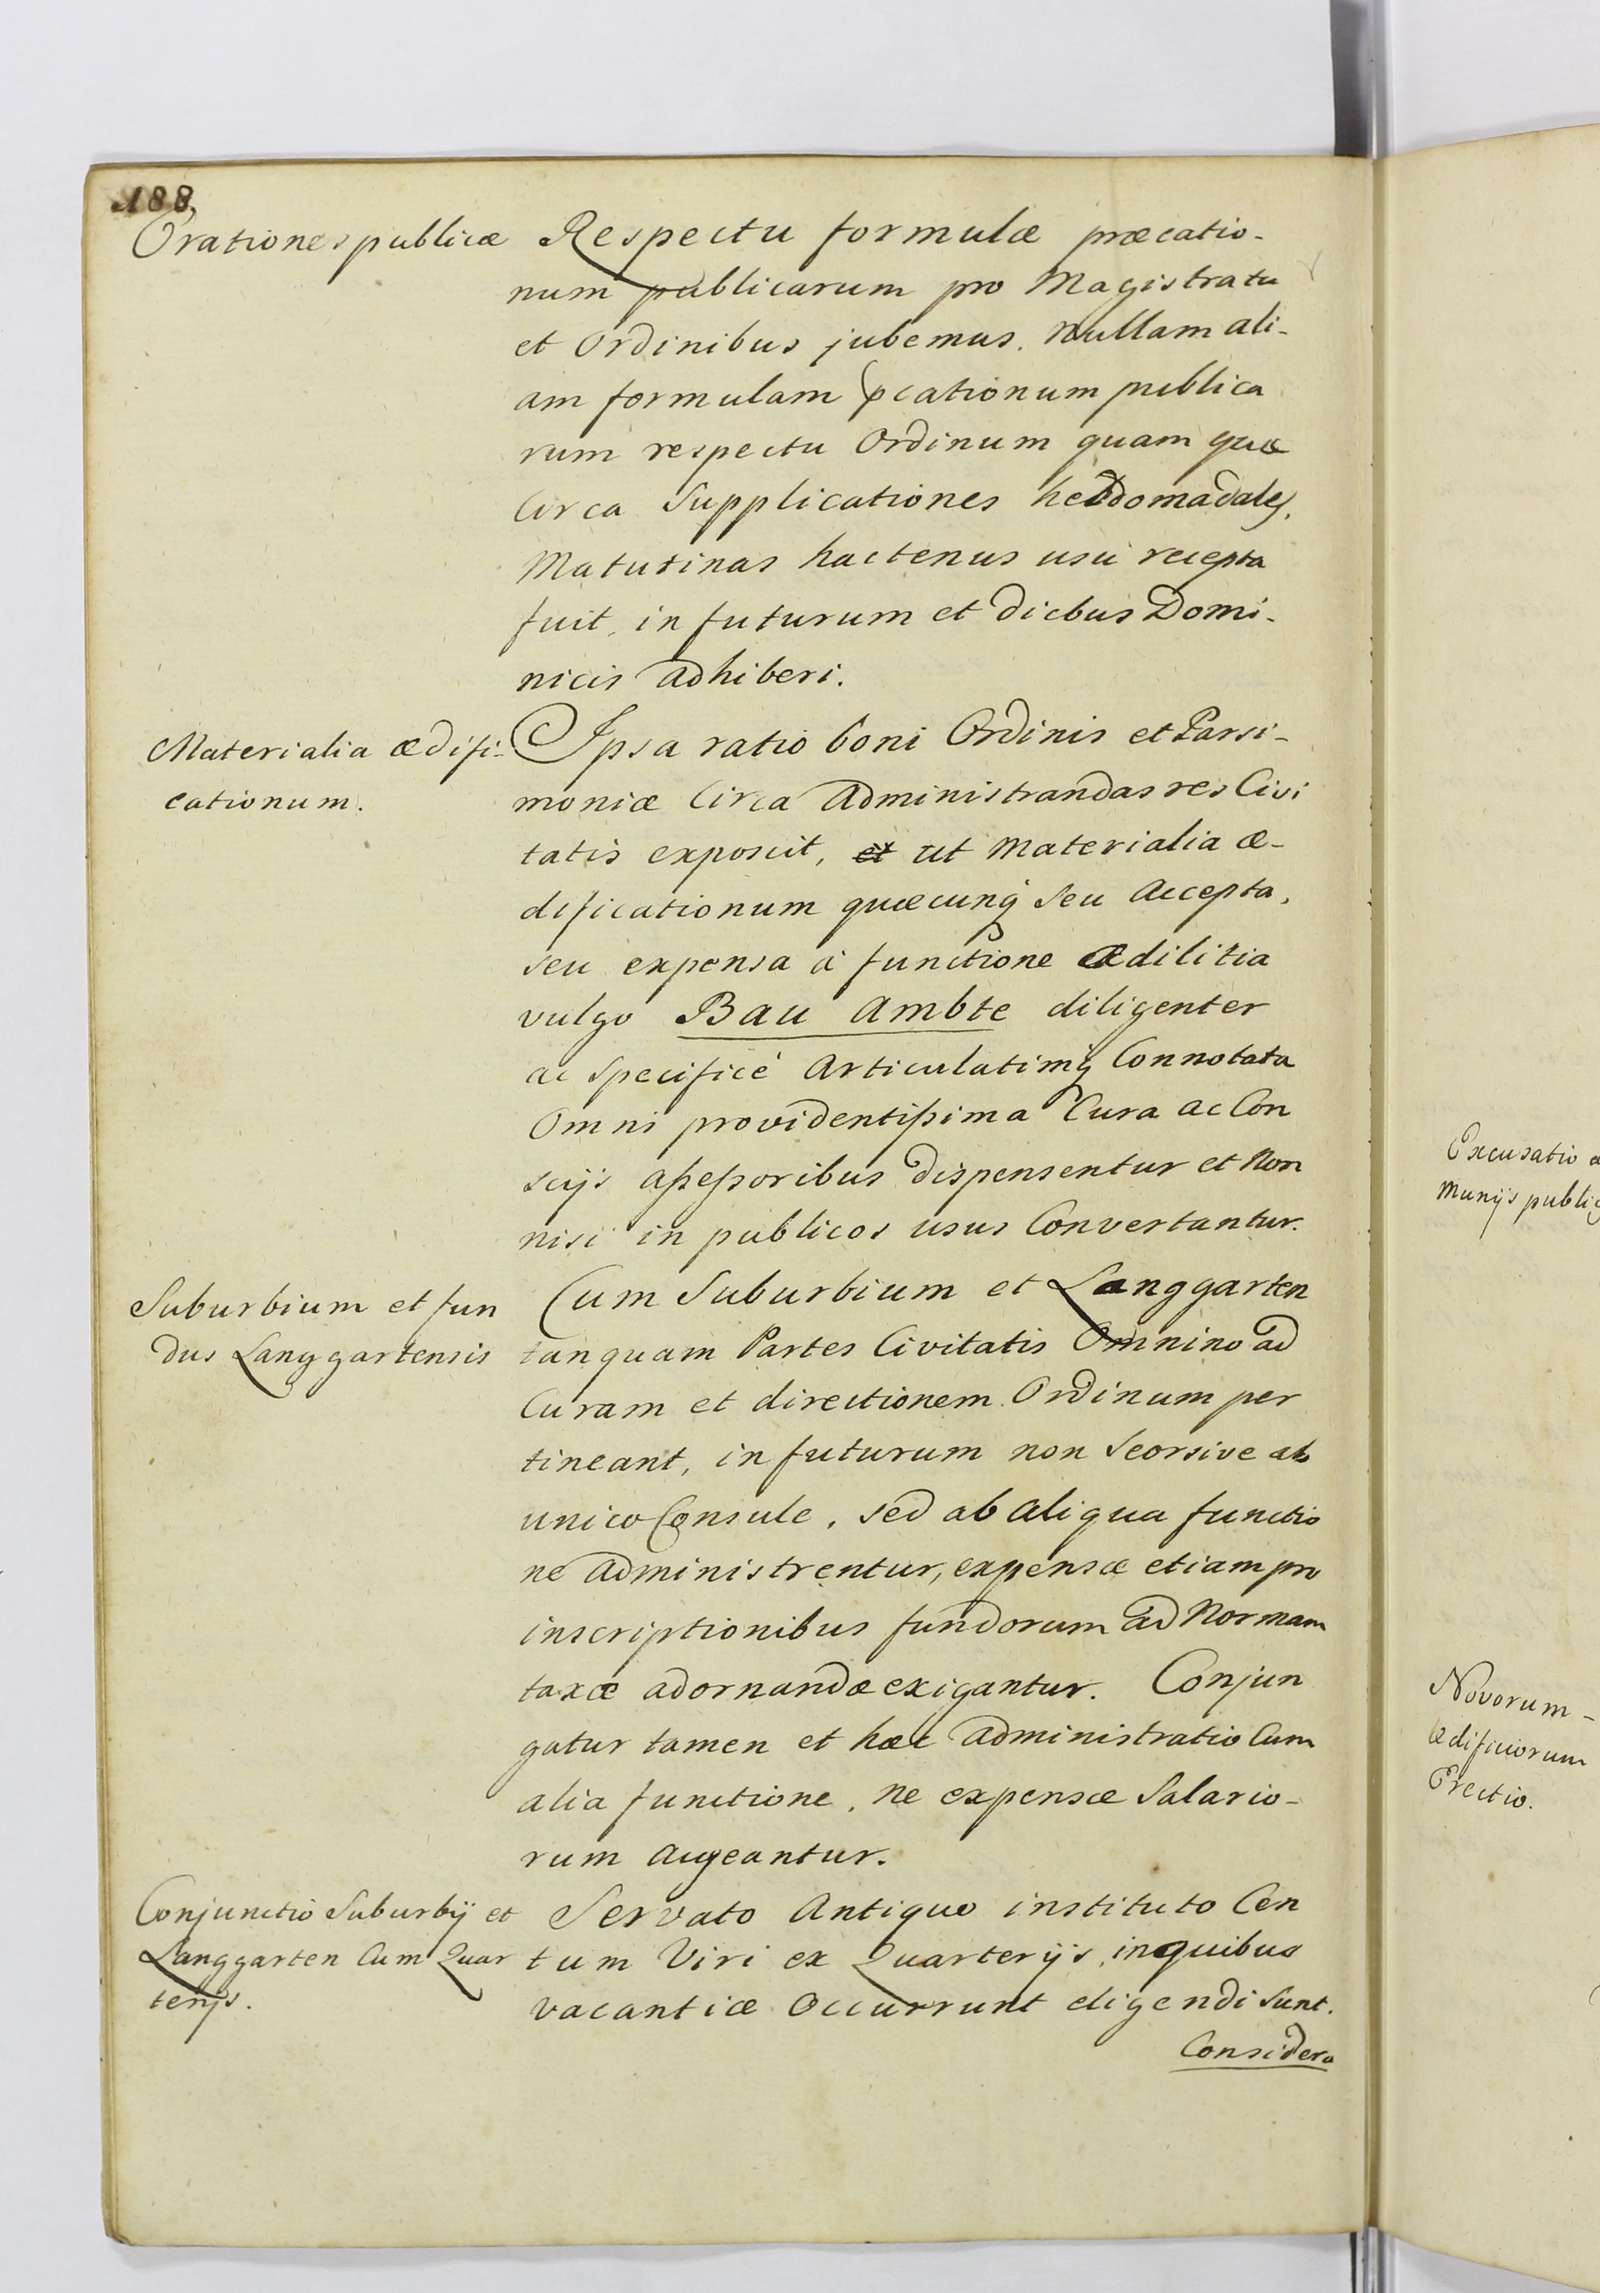 188.
Orationes publicæ
Respectu formulæ præcatio-
num publicarum pro Magistratu
et Ordinibus jubemus. Nullam ali-
am formulam pcationum publica
rum respectu Ordinum quam quæ
Circa Supplicationes hebdomadales,
Matutinas hactenus usu recepta
fuit, in futurum et diebus Domi-
nicis adhiberi.
Materialia ædifi-
cationum.
Ipsa ratio boni Ordinis et Parsi-
moniæ Circa Administrandas res Civi
tatis exposcit, et ut Materialia æ-
dificationum quæcunq seu Accepta,
seu expensa à functione Ædilitia
vulgo Bau Ambte diligenter
ac specificé Articulatimq Connotata
Omni providentißima Cura ac Con
scijs aßeßoribus dispensentur et Non
nisi in publicos usus Convertantur.
Suburbium et fun
dus Langgartensis
Cum Suburbium et Langgarten
tanquam Partes Civitatis Omnino ad
Curam et directionem Ordinum per
tineant, in futurum non Seorsive ab
unico Consule, sed ab aliqua functio
ne administrentur, expensæ etiam pro
inscriptionibus fundorum ad Normam
taxæ adornandæ exigantur. Conjun
gatur tamen et hæc administratio Cum
alia functione, ne expensæ Salario-
rum augeantur.
Conjunctio Suburbij et
Langgarten Cum Quar
terijs.
Servato Antiquo instituto Cen
tum Viri ex Quarterijs, in quibus
vacantiæ Occurrunt eligendi sunt.
Considera
Excusatio
Munijs
Novorum-
ædificiorum
Erectio.